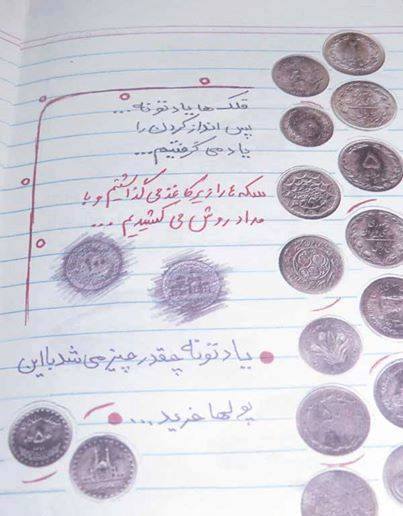 قلک ها یادتونه...
پس انداز کردن را
یاد می گرفتیم...
سکه ها را زیر کاغذ می گذاشتیم و با
مداد روش می کشیدیم ...
۱۰۰
یادتونه چقدر چیز می شد با این
پولها خرید...
۵
۵۰